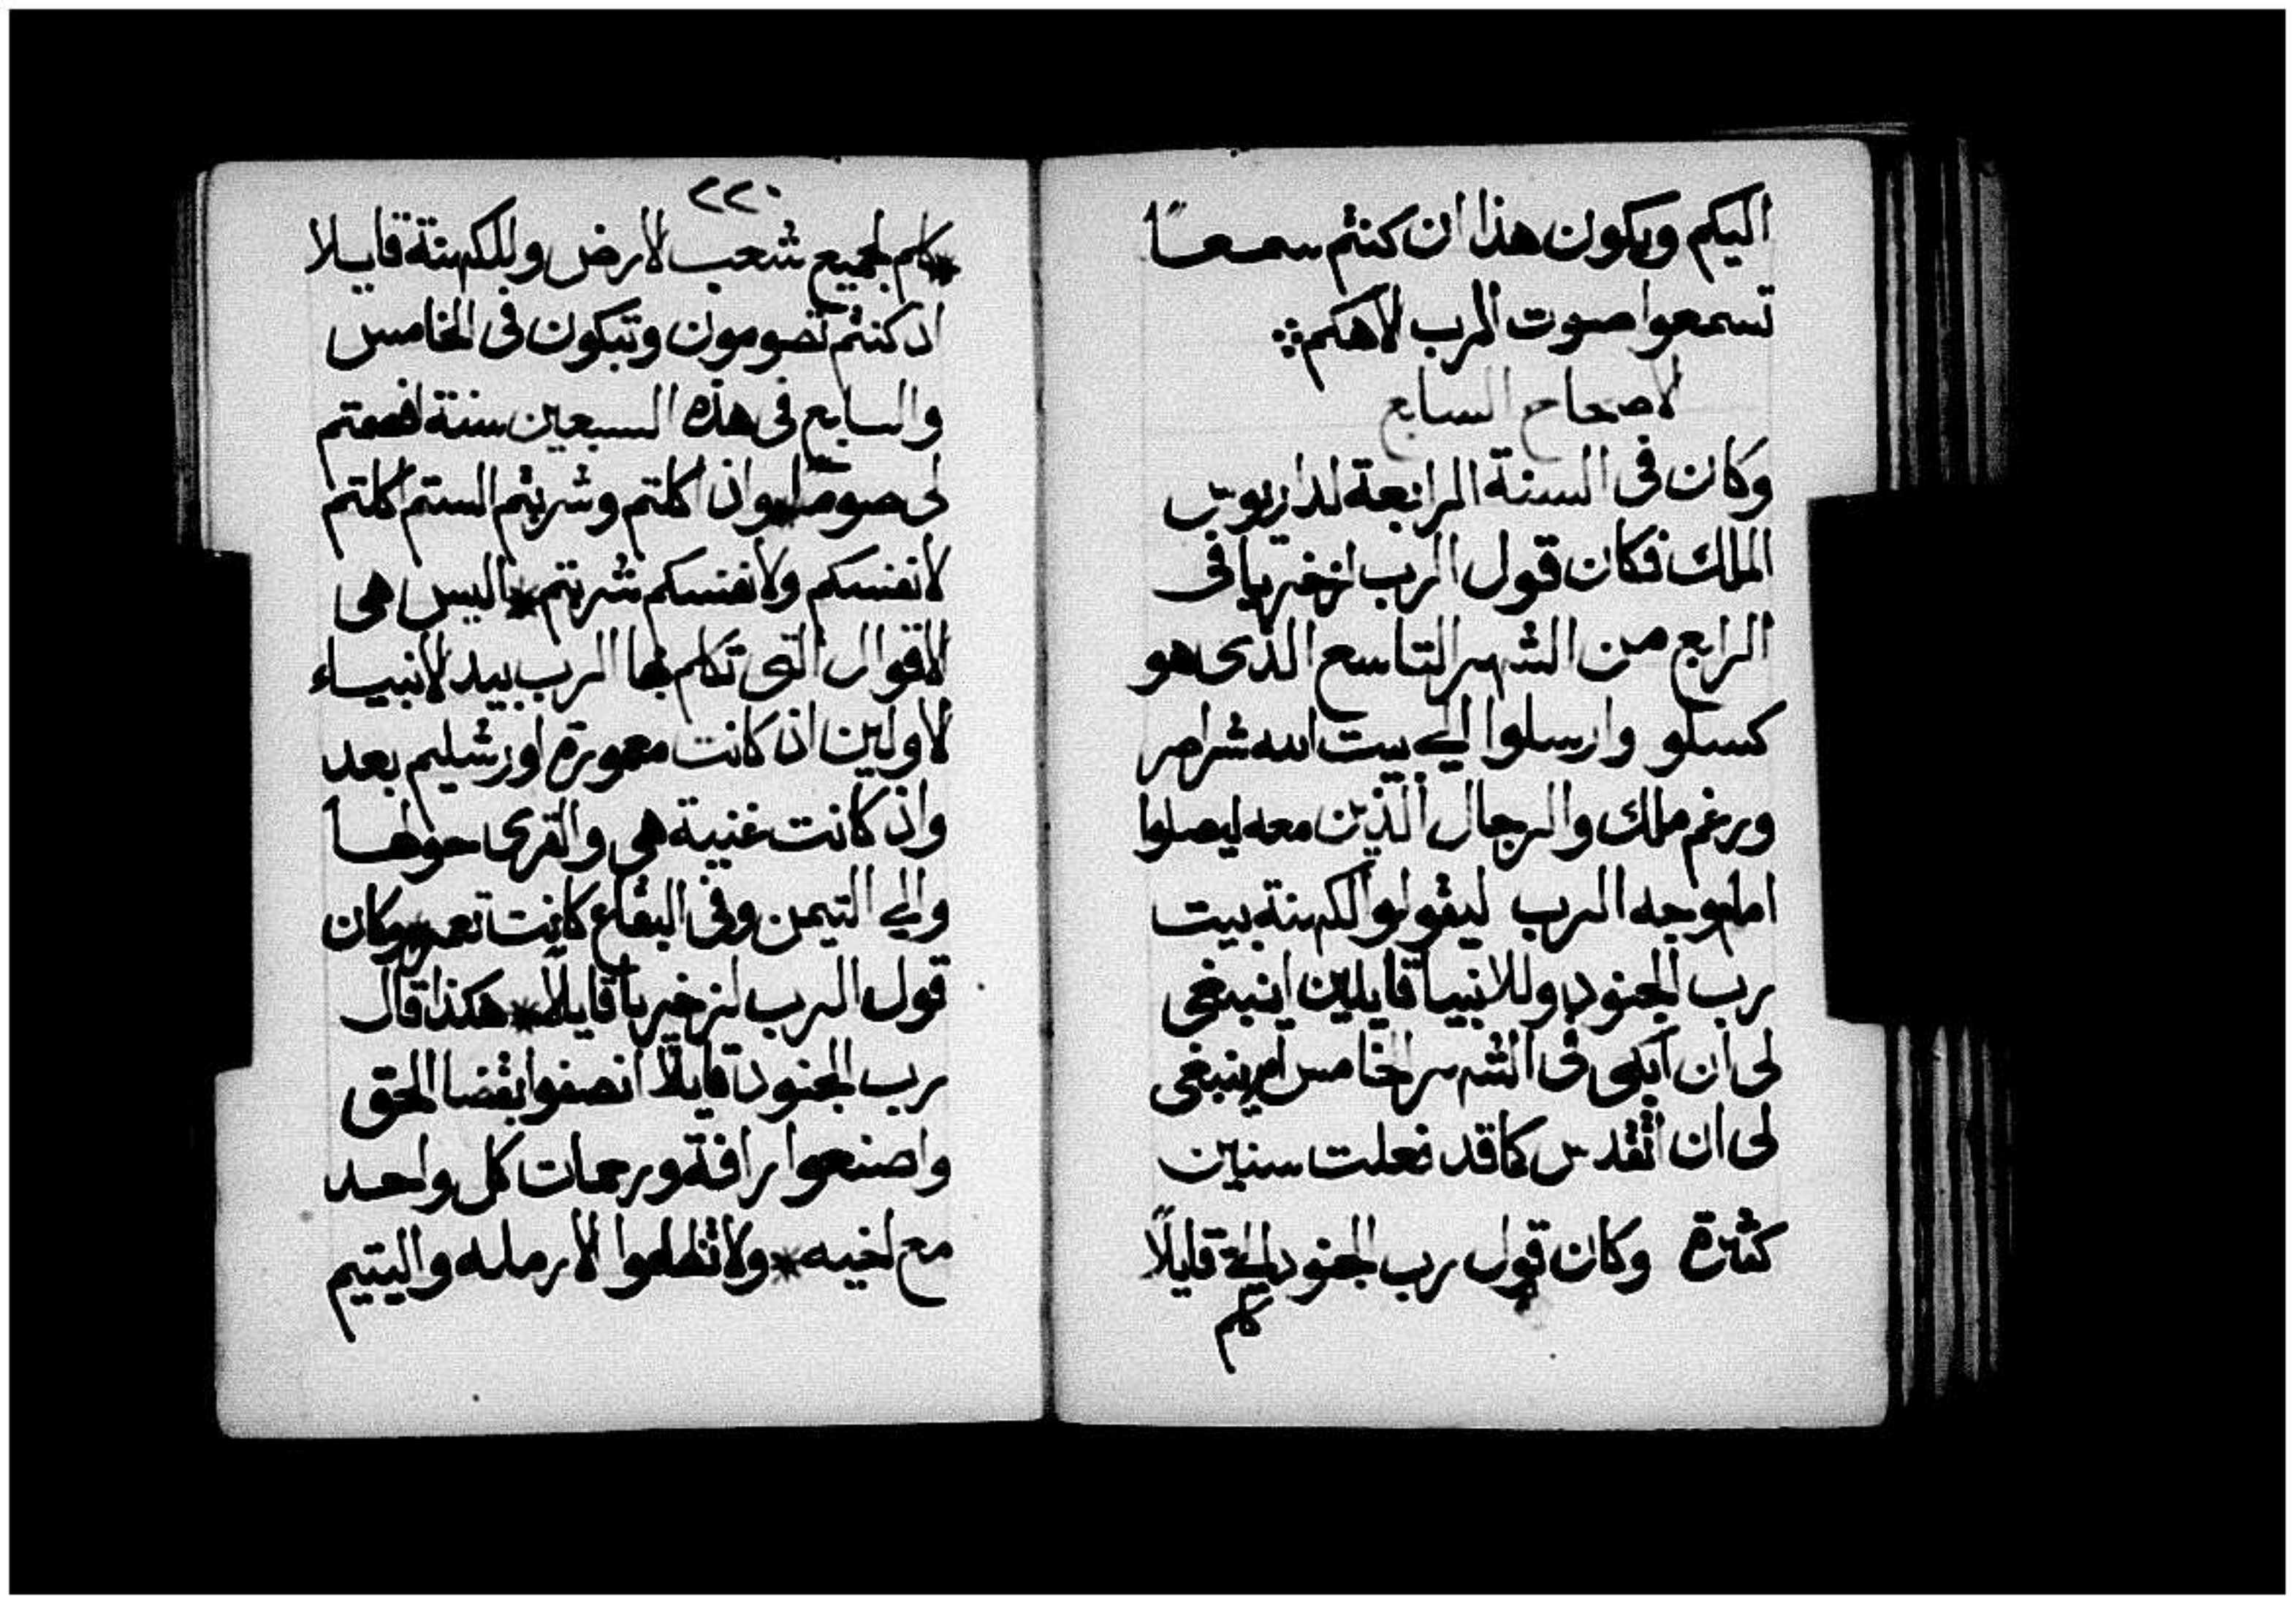 اليكم ويكون هذا ان كنتم سمعًا
تسمعوا صوت الرب الاهكم
الاصحاح السابع
وكان فى السنة الرابعة لداريوس
الملك فكان قول الرب لزخريا فى
الرابع من الشهر التاسع الذى هو
كسلو وارسلوا الي بيت الله شراصر
ورغم ملك والرجال الذين معه ليصلوا
امام وجه الرب ليقولوا لكهنة بيت
رب الجنود وللانبيا قايلين اينبغى
لى ان ابكى فى الشهر الخامس ام ينبغى
لى ان اتقدس كما قد فعلت سنين
كثيرة وكان قول رب الجنود الي قايلًا
كلم
٢٢٠
كلم لجميع شعب الارض وللكهنة قايلا
اذ كنتم تصومون وتبكون فى الخامس
والسابع فى هذه السبعين سنة افصمتم
لى صوما واذ اكلتم وشربتم الستم اكلتم
لانفسكم ولانفسكم شربتم اليس هى
الاقوال التى تكلم بها الرب بيد الانبياء
الاولين اذ كانت معمورة اورشليم بعد
واذ كانت غنية هى والقرى حولها
والي التيمن وفى البقاع كانت تعمر وكان
قول الرب لزخريا قايلًا هكذا قال
رب الجنود قايلًا انصفوا بقضا الحق
واصنعوا رافة ورحمات كل واحد
مع اخيه ولا تظلموا الارمله واليتيم